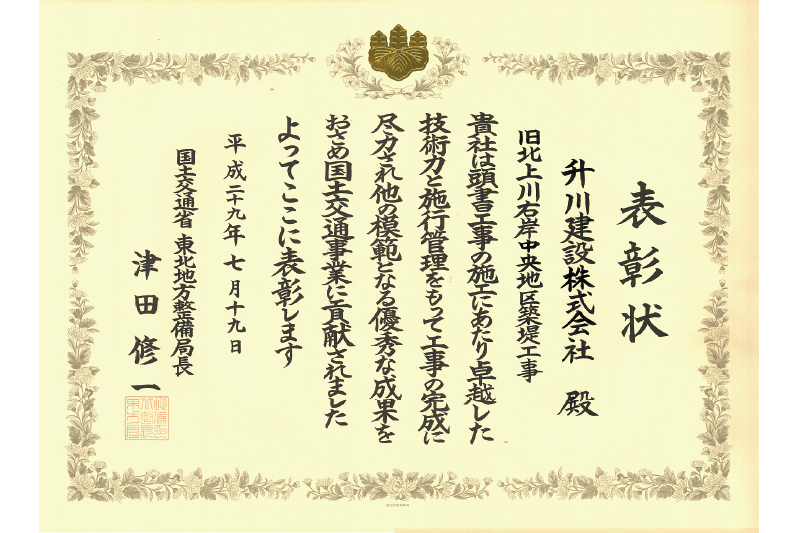 表彰状
升川建設株式会社 殿
旧北上川右岸中央地区築堤工事
貴社は頭書工事の施工にあたり卓越した
技術力と施行管理をもって工事の完成に
尽力され他の模範となる優秀な成果を
おさめ国土交通事業に貢献されました
よってここに表彰します
平成二十九年七月十九日
国土交通省 東北地方整備局長
津田修一